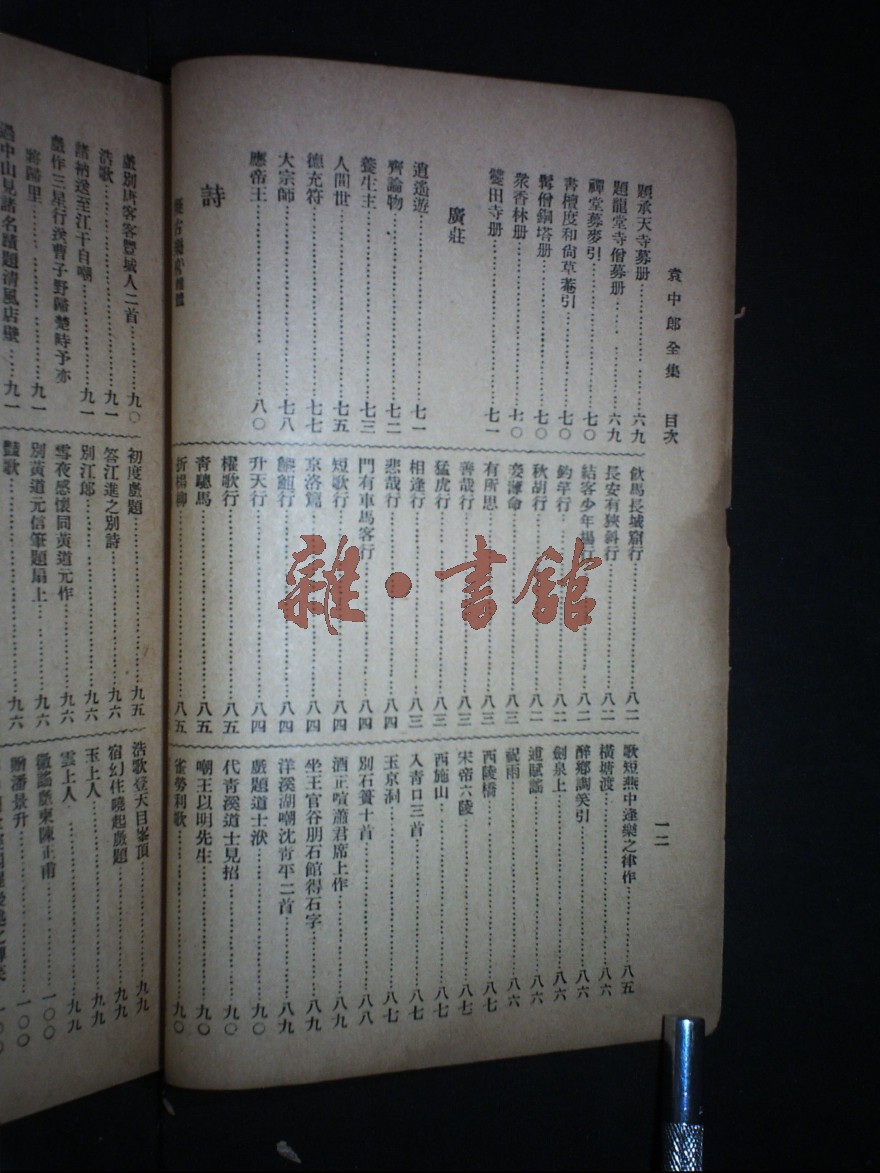 袁中郎全集 目次 一二
題承天寺募册 六九
題龍堂寺僧募册 六九
禪堂募麥引 七〇
書檀度和尙草菴引 七〇
髯僧銅塔册 七〇
衆香林册 七〇
甓田寺册 七一
廣莊
逍遙遊 七一
齊論物 七二
養生主 七三
人間世 七五
德充符 七七
大宗師 七八
應帝王 八〇
詩
飮馬長城窟行 八一
長安有狹斜行 八一
結客少年場行 八一
釣竿行 八二
秋胡行 八二
妾薄命 八三
有所思 八三
善哉行 八三
猛虎行 八三
相逢行 八三
悲哉行 八四
門有車馬客行 八四
短歌行 八四
京洛篇 八四
升天行 八四
櫂歌行 八五
靑驄馬 八五
折楊柳 八五
歌短燕中逢樂之律作 八五
橫塘渡 八六
醉鄕調笑引 八六
劍泉上 八六
道賦謠 八六
祝雨 八六
西陵橋 八七
宋帝六陵 八七
西施山 八七
入靑口三首 八七
玉京洞 八七
別石簣十首 八八
酒正喧蕭君席上作 八九
坐王官谷朋石館得石字 八九
洋溪湖嘲沈靑平二首 八九
戲題道士洑 九〇
代靑溪道士見招 九〇
嘲王以明先生 九〇
雀勞利歌 九〇
戲別唐客客豐城人二首 九〇
浩歌 九一
諸衲送至江干自嘲 九一
戲作三星行送曹子野歸楚時予亦
將歸里 九一
過中山見諸名蹟題淸風店壁 九一
初度戲題 九五
答江進之別詩 九六
別江郎 九六
雪夜感懷同黃道元作 九六
別黃道元信筆題扇上 九六
豔歌 九六
浩歌登天目峯頂 九九
宿幻住曉起戲題 九九
玉上人 九九
雲上人 九九
徽謠戲柬陳正甫 一〇〇
贈潘景升 一〇〇
雜·書館